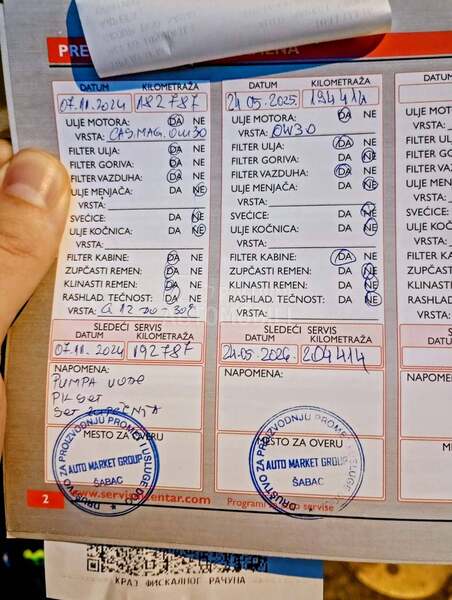 PRE MENA
DATUM KILOMETRAŽA
07.11.2024 182787
ULJE MOTORA: DA NE
VRSTA: CAS MAG. 0W30
FILTER ULJA: DA NE
FILTER GORIVA: DA NE
FILTER VAZDUHA: DA NE
ULJE MENJAČA: DA NE
VRSTA:
SVEĆICE: DA NE
ULJE KOČNICA: DA NE
VRSTA:
FILTER KABINE: DA NE
ZUPČASTI REMEN: DA NE
KLINASTI REMEN: DA NE
RASHLAD. TEČNOST: DA NE
VRSTA: G 12
SLEDEĆI SERVIS
DATUM KILOMETRAŽA
07.11.2024 192787
NAPOMENA:
PUMPA VODE
PK SET
SET ZUPČENJA
MESTO ZA OVERU
DRUŠTVO ZA PROIZVODNJU PROMET I USLUGE DOO
AUTO MARKET GROUP
ŠABAC
2 www.serviscentar.com
DATUM KILOMETRAŽA
24.05.2025. 194414
ULJE MOTORA: DA NE
VRSTA: 0W30
FILTER ULJA: DA NE
FILTER GORIVA: DA NE
FILTER VAZDUHA: DA NE
ULJE MENJAČA: DA NE
VRSTA:
SVEĆICE: DA NE
ULJE KOČNICA: DA NE
VRSTA:
FILTER KABINE: DA NE
ZUPČASTI REMEN: DA NE
KLINASTI REMEN: DA NE
RASHLAD. TEČNOST: DA NE
VRSTA:
SLEDEĆI SERVIS
DATUM KILOMETRAŽA
24.05.2026. 204414
NAPOMENA:
MESTO ZA OVERU
DRUŠTVO ZA PROIZVODNJU PROMET I USLUGE DOO
AUTO MARKET GROUP
ŠABAC
Programi za auto servise
КРАЈ ФИСКАЛНОГ РАЧУНА